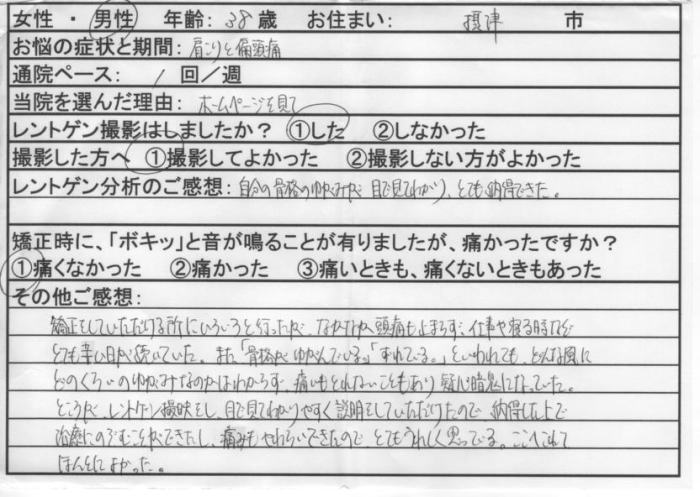 女性 ・ 男性 年齢: 38 歳 お住まい: 摂津 市
お悩の症状と期間: 肩こりと偏頭痛
通院ペース: 1 回/週
当院を選んだ理由: ホームページを見て
レントゲン撮影はしましたか? ①した ②しなかった
撮影した方へ ①撮影してよかった ②撮影しない方がよかった
レントゲン分析のご感想: 自分の骨格のゆがみが目で見てわかり、とても納得できた。
矯正時に、「ボキッ」と音が鳴ることが有りましたが、痛かったですか?
①痛くなかった ②痛かった ③痛いときも、痛くないときもあった
その他ご感想:
矯正をしていただける所にいろいろと行ったが、なかなか頭痛も止まらず、仕事や寝る時など
とても辛い日が続いていた。また「骨格がゆがんでいる。」「ずれている。」といわれても、どんな風に
どのくらいのゆがみなのかはわからず、痛いもとれないこともあり疑心暗鬼になっていた。
ところが、レントゲン撮映をし、目で見てわかりやすく説明をしていただけたので、納得した上で
治療にのぞむことができたし、痛みもやわらいできたので、とてもうれしく思っている。ここへこれて
ほんとによかった。